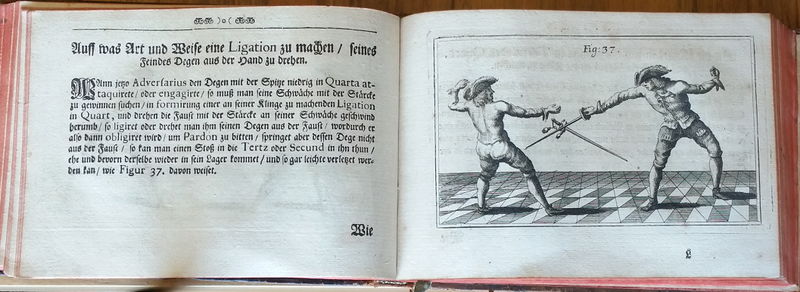 )o(
Auff was Art und Weise eine Ligation zu machen / seines
Feindes Degen aus der Hand zu drehen.
WAnn jetzo Adversarius den Degen mit der Spitze niedrig in Quarta at-
taquirete / oder engagirte / so muß man seine Schwäche mit der Stärcke
zu gewinnen suchen / in formirung einer an seiner Klinge zu machenden Ligation
in Quart, und drehen die Faust mit der Stärcke an seiner Schwäche geschwind
herumb / so ligiret oder drehet man ihm seinen Degen aus der Faust / wordurch er
alsdann obligiret wird / um Pardon zu bitten / springet aber dessen Dege nicht
aus der Faust / so kan man einen Stoß in die Tertz oder Secund in ihn thun /
ehe und bevorn derselbe wieder in sein Lager kommet / und so gar leichte verletzet wer-
den kan / wie Figur 37. davon weiset.
Wie
Fig: 37.
L